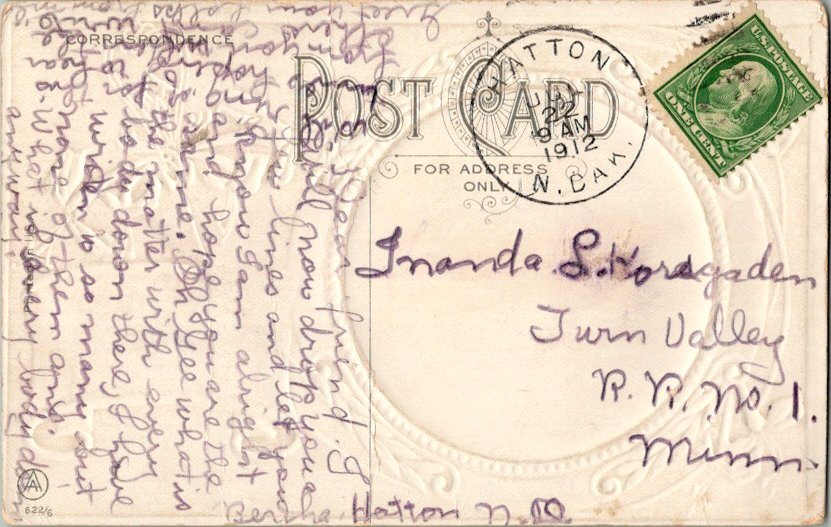 CORRESPONDENCE
POST CARD
FOR ADDRESS
ONLY
HATTON
JUL
22
9 AM
1912
N. DAK.
U.S. POSTAGE
ONE CENT
Dear friend. I
will now drop you a
few lines and let you
know I am alright
and hope you are the
same. Oh Gee what is
the matter with every
body down there, I have
written to so many but
none of them ans.
What is
every body doing
anyway.
Bertha. Hatton N. D.
Inanda S. Korsgaden
Turn Valley
R. R. No. 1.
Minn.
A
622/6